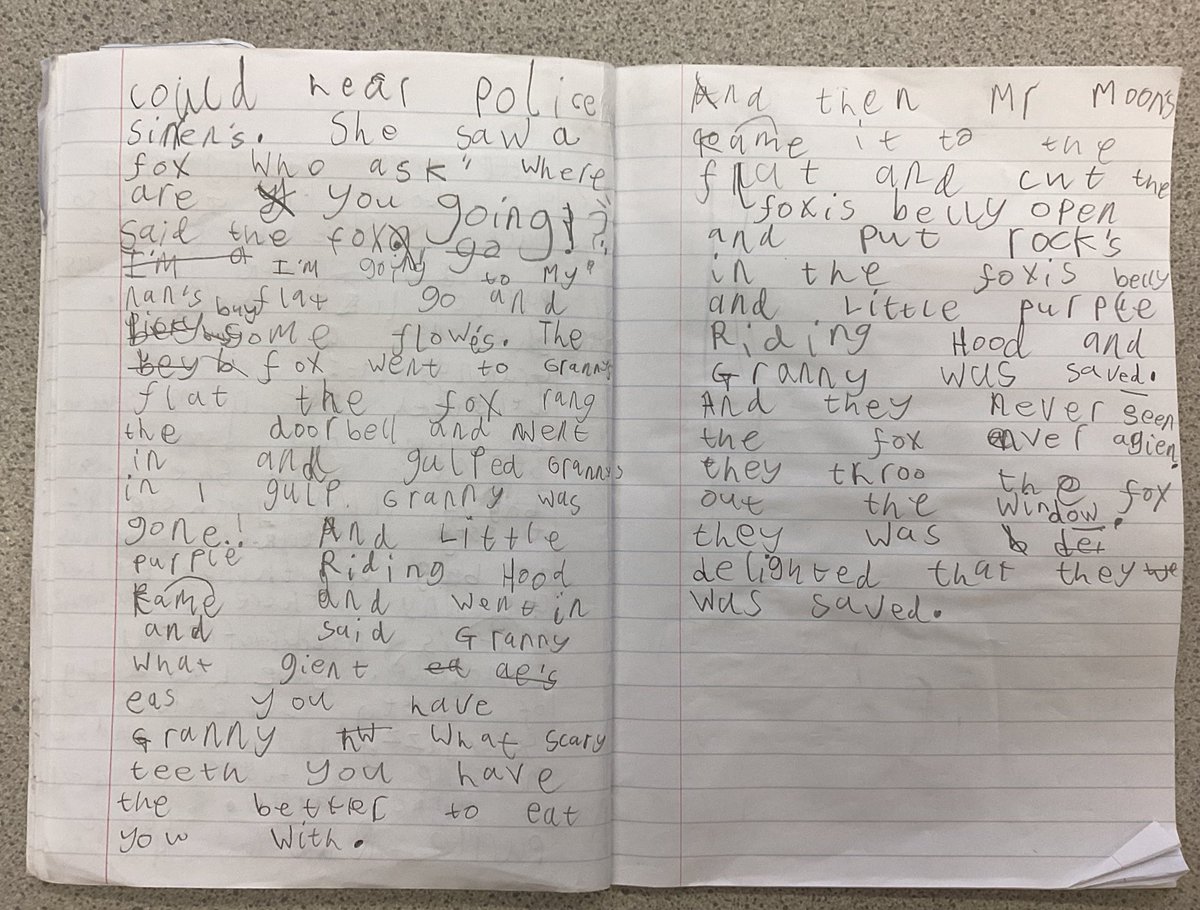 could hear police
siren's. She saw a
fox who ask" where
are you going!?"
said the fox go
I'm I'm going to My"
nan's flat go and
buy some flowe's. The
bey b fox went to Granny
flat the fox rang
the doorbell and went
in and gulped Granny's
in 1 gulp. Granny was
gone.! And Little
purple Riding Hood
Came and went in
and said Granny
what gient ea ae's
eas you have
Granny hw what scary
teeth you have
the better to eat
you with.
And then Mr Moon's
came it to the
flat and cut the
foxis belly open
and put rock's
in the foxis belly
and Little purple
Riding Hood and
Granny was saved.
And they never seen
the fox ever agien.
they throo the fox
out the window.
they was b del
delighted that they we
was saved.